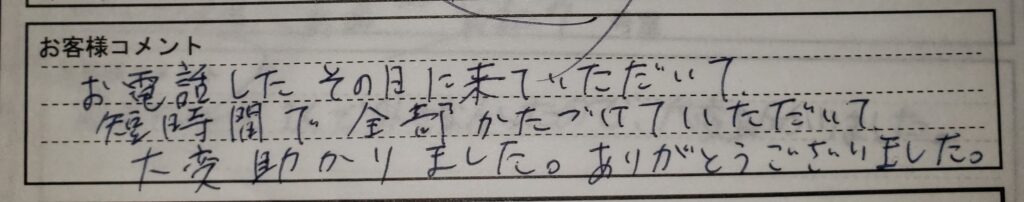 お客様コメント
お電話したその日に来ていただいて
短時間で全部かたづけていただいて
大変助かりました。ありがとうございました。